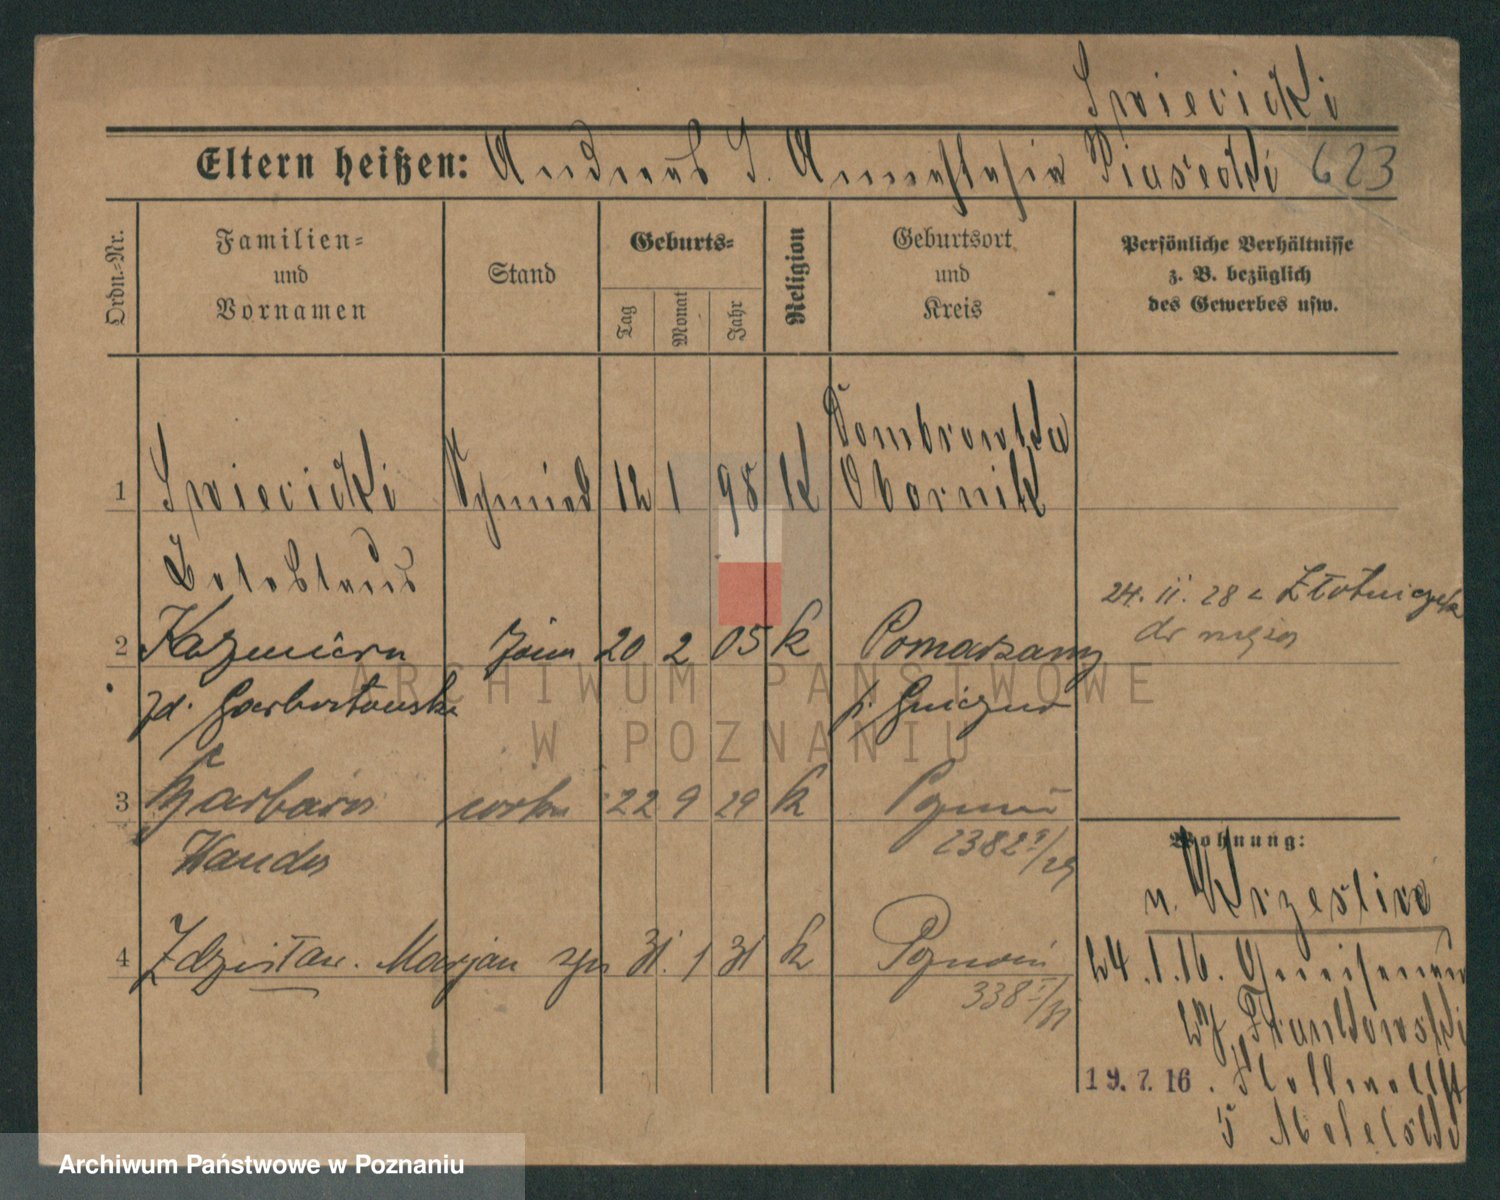 Swiecicki
Eltern heißen: Andreas S. Annastasia Piasecki 623
Ordn.-Nr.
Familien-
und
Vornamen
Stand
Geburts-
Tag
Monat
Jahr
Religion
Geburtsort
und
Kreis
Persönliche Verhältnisse
z. B. bezüglich
des Gewerbes usw.
Dombrowka
1 Swiecicki Schmied 12 1 98 K Obornik
24. II. 28 z
do męża
2 Kazimiera żona 20 2 05 k Pomarzany
zd. Garbartowska p. Gniezno
3 Barbara córka 22 9 29 k Poznań
Wanda 2382 I/29
4 Zdzisław Marjan syn 31 1 31 k Poznań
338 I/31
Wohnung:
v. Wrzeslive
24.1.16. Gneisenau
19.7.16.
ARCHIWUM PAŃSTWOWE
W POZNANIU
Archiwum Państwowe w Poznaniu